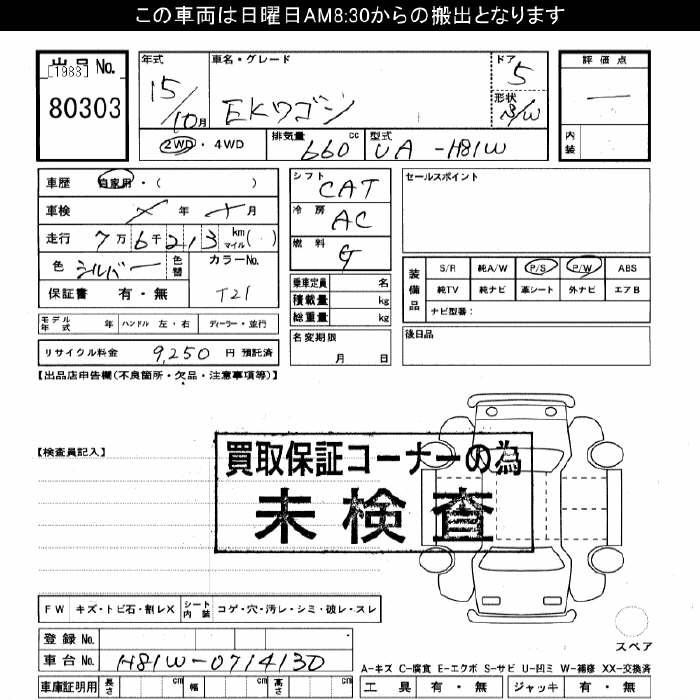 この車両は日曜日AM8:30からの搬出となります
出品No.
[1983]
80303
年式
15/10月
車名・グレード
EKワゴン
ドア
5
形状
評価点
―
内装
2WD・4WD
排気量
660 cc
型式
UA-H81W
車歴 自家用・( )
車検 年 月
走行 7万6千213 km マイル( )
色 シルバー 色替
カラーNo.
T21
保証書 有・無
シフト CAT
冷房 AC
燃料 G
乗車定員 名
積載量 kg
総重量 kg
名変期限
月 日
セールスポイント
装備品
S/R 純A/W P/S P/W ABS
純TV 純ナビ 革シート 外ナビ エアB
ナビ型番:
後日品
モデル年式 年 ハンドル 左・右 ディーラー・並行
リサイクル料金 9,250 円 預託済
【出品店申告欄(不良箇所・欠品・注意事項等)】
【検査員記入】
買取保証コーナーの為
未検査
FW キズ・トビ石・割レX シート内装 コゲ・穴・汚レ・シミ・破レ・スレ
スペア
登録No.
車台No. H81W-0714130
車庫証明用 長さ cm 幅 cm 高さ cm
A-キズ C-腐食 E-エクボ S-サビ U-凹ミ W-補修 XX-交換済
工具 有・無 ジャッキ 有・無